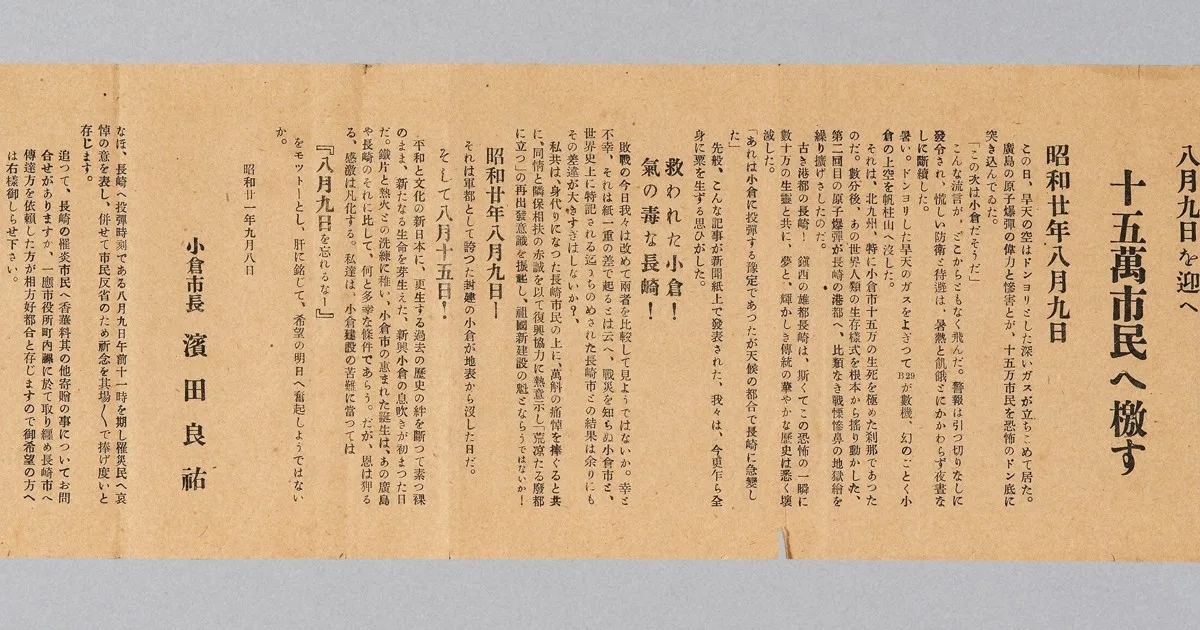 八月九日を迎へ
十五萬市民へ檄す
昭和廿年八月九日
この日、旱天の空はドンヨリとした深いガスが立ちこめて居た。
廣島の原子爆彈の偉力と慘害とが、十五万市民を恐怖のドン底に
突き込んでゐた。
「この次は小倉だそうだ」
こんな流言が、どこからともなく飛んだ。警報は引つ切りなしに
發令され、慌しい防衛と待避は、暑熱と飢餓とにかかわらず夜晝な
しに斷續した。
暑い。ドンヨリした旱天のガスをよぎつてB29が數機、幻のごとく小
倉の上空を帆柱山へ沒した。
それは、北九州、特に小倉市十五万の生死を極めた刹那であつた
のだ。數分後、あの世界人類の生存樣式を根本から搖り動かした、
第二回目の原子爆彈が長崎の港都へ、比類なき戰慄慘鼻の地獄繪を
繰り擴げさしたのだ。
古き港都の長崎！　鎭西の雄都長崎は、斯くてこの恐怖の一瞬に
數十万の生靈と共に、夢と、輝かしき傳統の華やかな歷史は悉く壞
滅した。
「あれは小倉に投彈する豫定であつたが天候の都合で長崎に急變し
た」
先般、こんな記事が新聞紙上で發表された、我々は、今更乍ら全
身に粟を生ずる思ひがした。
救われた小倉！
氣の毒な長崎！
敗戰の今日我々は改めて兩者を比較して見ようではないか。幸と
不幸、それは紙一重の差で起るとは云へ、戰災を知らぬ小倉市と、
世界史上に特記される迄うちのめされた長崎市との結果は余りにも
その差達が大きすぎはしないか？、
私共は、身代りになつた長崎市民の上に、萬斛の痛悼を捧ぐると共
に、同情と隣保相扶の赤誠を以て復興協力に熱意示し「荒凉たる廢都
に立つ」の再出發意識を振起し、祖國新建設の魁とならうではないか！
昭和廿年八月九日！
それは軍都として誇つた封建の小倉が地表から沒した日だ。
そして八月十五日！
平和と文化の新日本に、更生する過去の歷史の絆を斷つて素つ裸
のまま、新たなる生命を芽生えた、新興小倉の息吹きが初まつた日
だ。鐵片と熱火との洗練に稚い、小倉市の惠まれた誕生は、あの廣島
や長崎のそれに比して、何と多幸な條件であらう。だが、恩は狎る
る、感激は凡化する。私達は、小倉建設の苦難に當つては
『八月九日を忘れるなー』
をモットーとし、肝に銘じて、希望の明日へ奮起しようではない
か。
昭和廿一年九月八日
小倉市長　濱田良祐
なほ、長崎へ投彈時刻である八月九日午前十一時を期し罹災民へ哀
悼の意を表し、併せて市民反省のため祈念を其場〱で捧げ度いと
存じます。
追つて、長崎の罹炎市民へ香華料其の他寄贈の事についてお問
合せがありますが、一應市役所町内課に於て取り纒め長崎市へ
傳達方を依賴した方が相方好都合と存じますので御希望の方へ
は右樣御しらせ下さい。